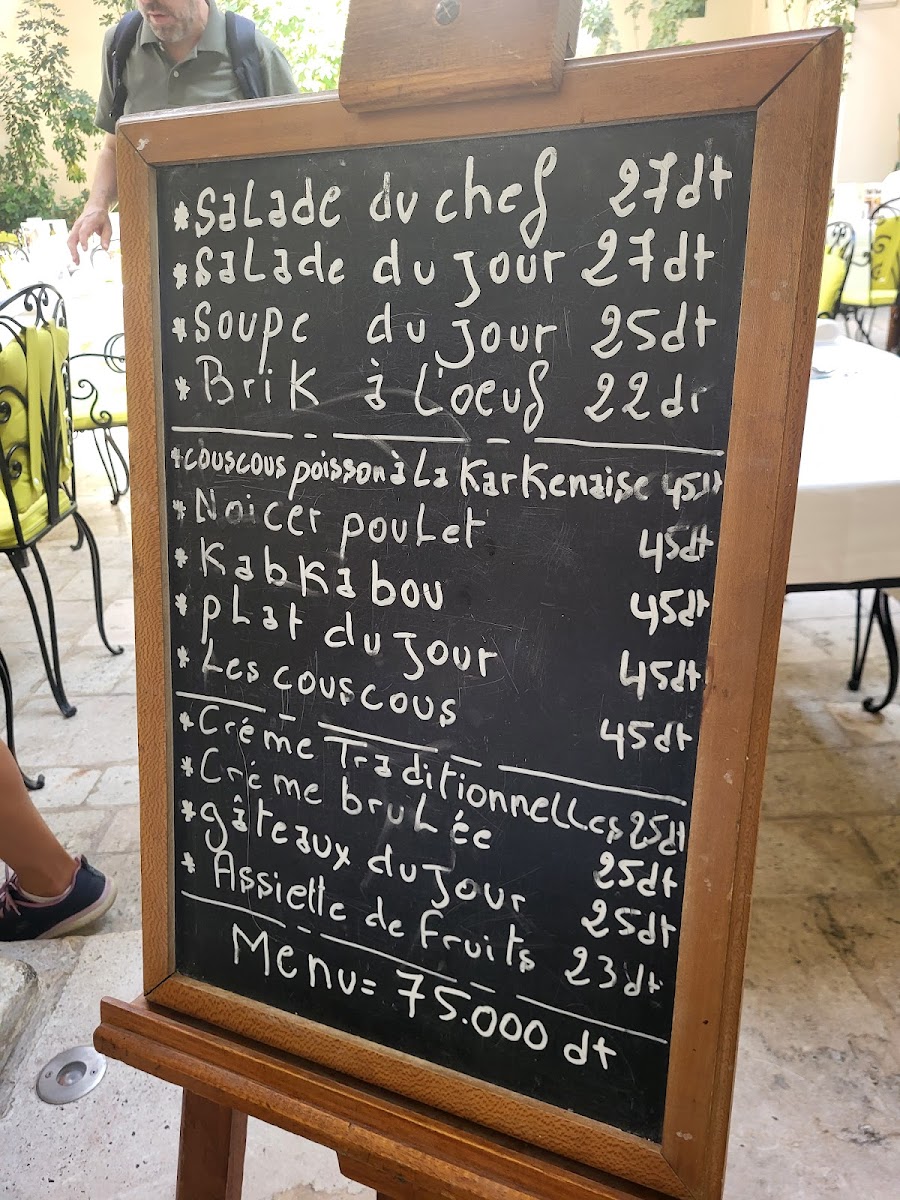 *Salade du chef 27dt
*Salade du jour 27dt
*Soupe du jour 25dt
*Brik à l'oeuf 22dt
*couscous poisson à la Karkenaise 45dt
*Noicer poulet 45dt
*Kabkabou 45dt
*plat du jour 45dt
*Les couscous 45dt
*Créme Traditionnelles 25dt
*Créme brulée 25dt
*gâteaux du jour 25dt
*Assiette de fruits 23dt
Menu= 75.000 dt